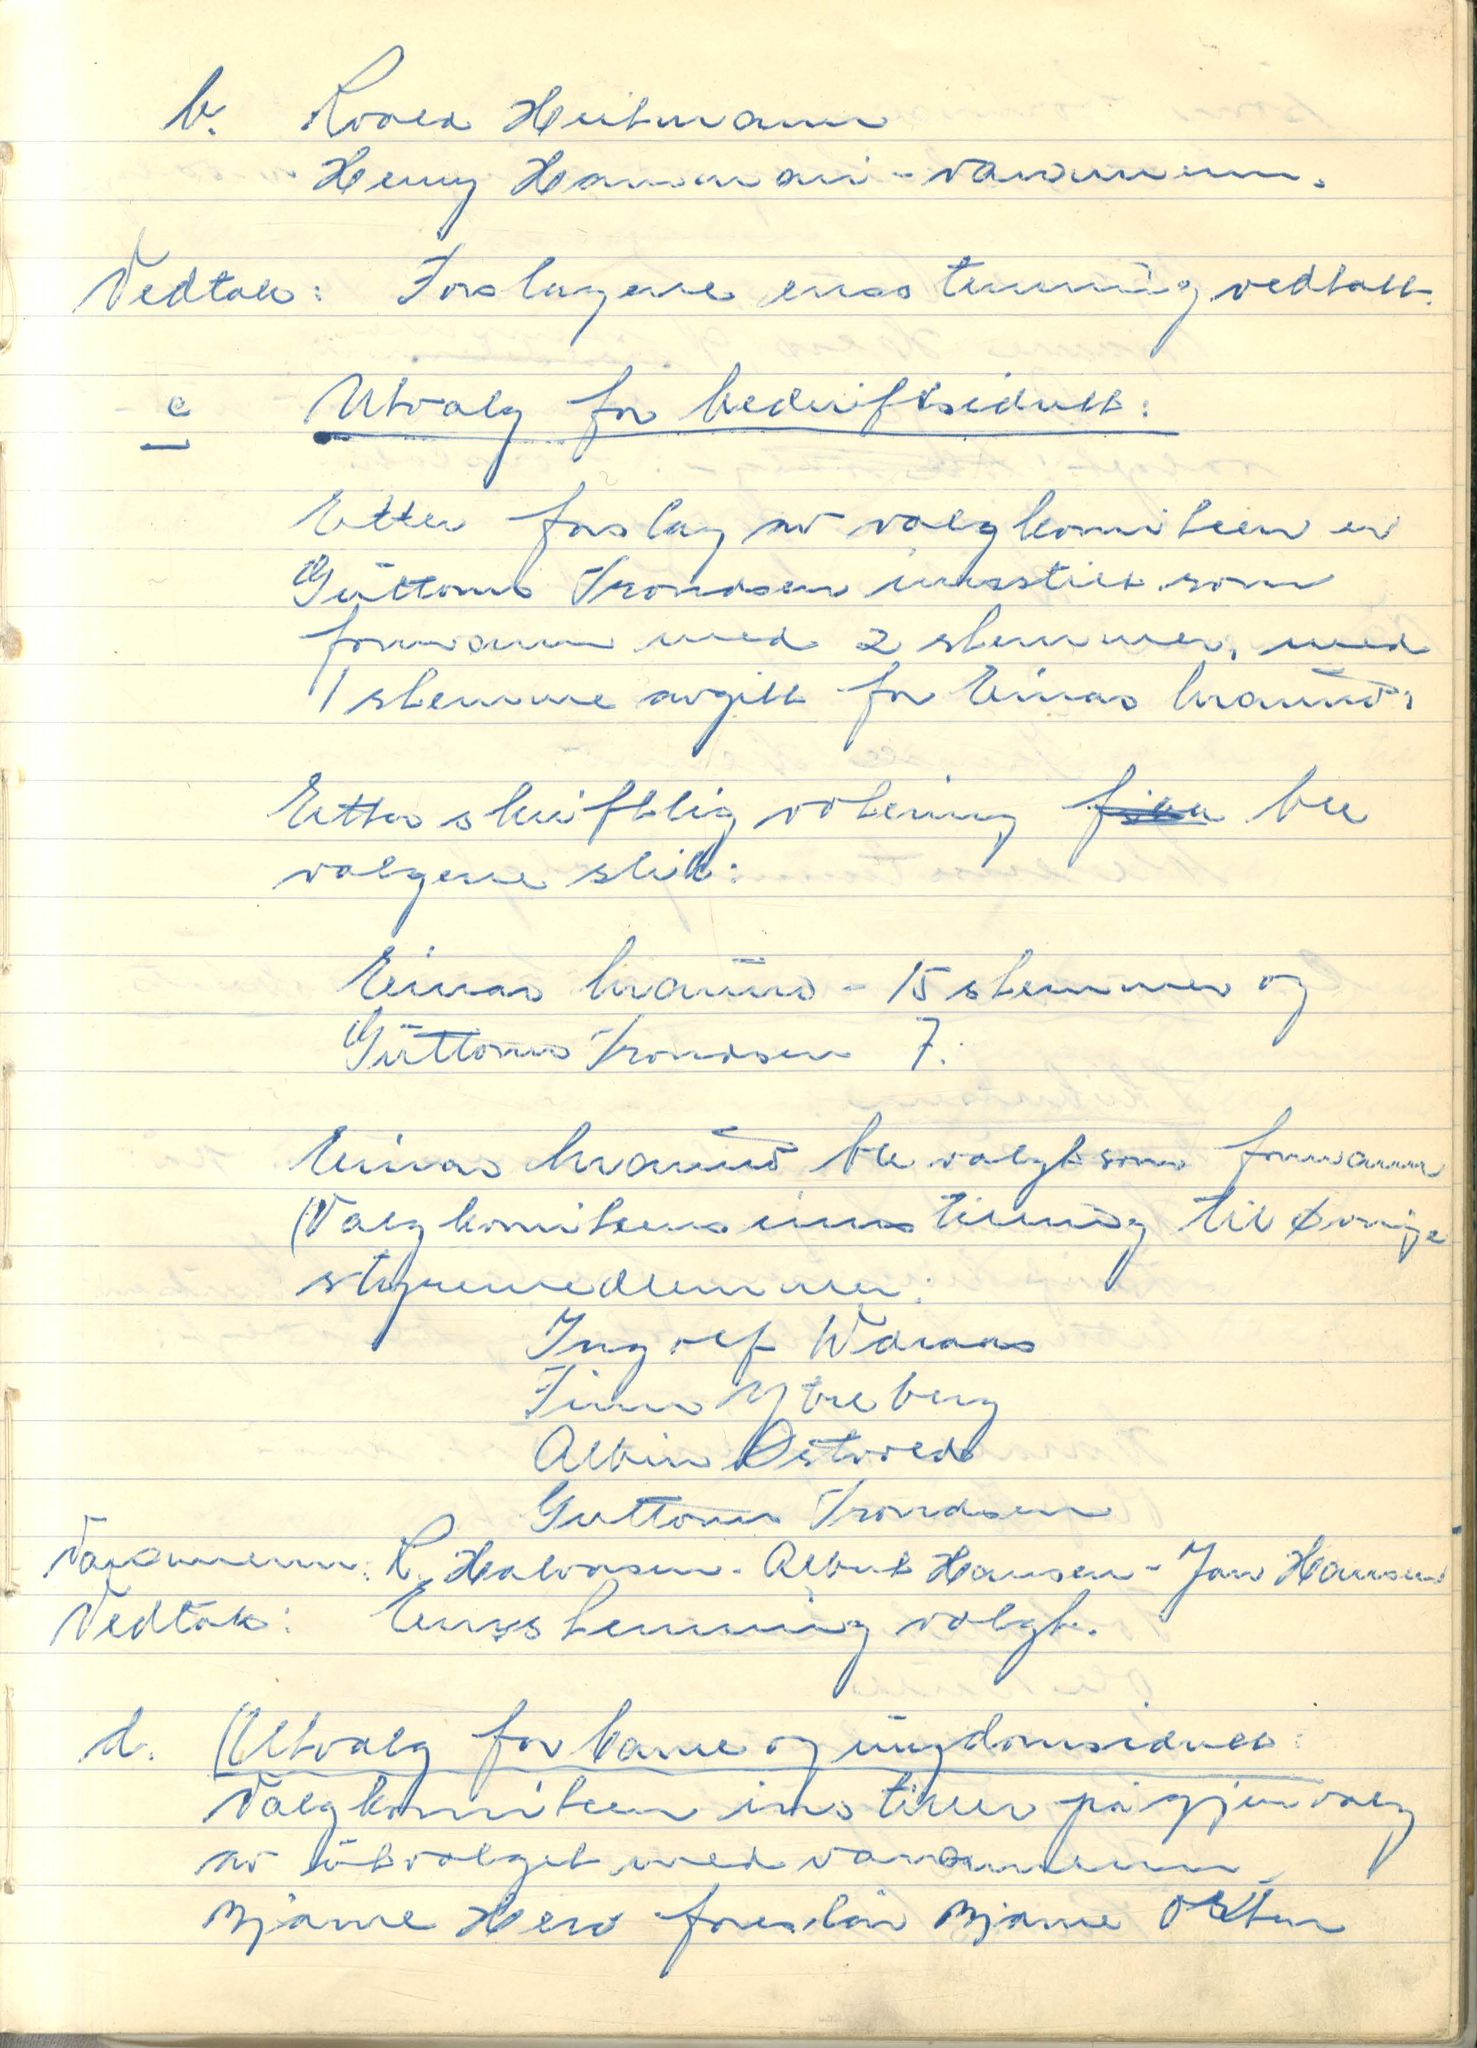 b. Roald Heitmann
Henry Hammari - varamenn.
Vedtak: Forslagene enstemmig vedtatt.
c Utvalg for bedriftsidrett:
Etter forslag av valgkomiteen er
Guttorm Trondsen innstilt som
formann med 2 stemmer, med
1 stemme avgitt for Einar
Etter skriftlig votering ble
valgene slik:
Einar - 15 stemmer og
Guttorm Trondsen 7.
Einar ble valgt som formann
Valgkomiteens innstilling til øvrige
styremedlemmer:
Ingolf Waraas
Finn Ytreberg
Albin Østvold
Guttorm Trondsen
Varamenn: R. Halvorsen - Albert Hansen - Jan Hansen
Vedtak: Enstemmig valgt.
d. Utvalg for barne og ungdomsidrett:
Valgkomiteen innstiller på gjenvalg
av utvalget med varamenn.
Bjarne Herø foreslår Bjarne